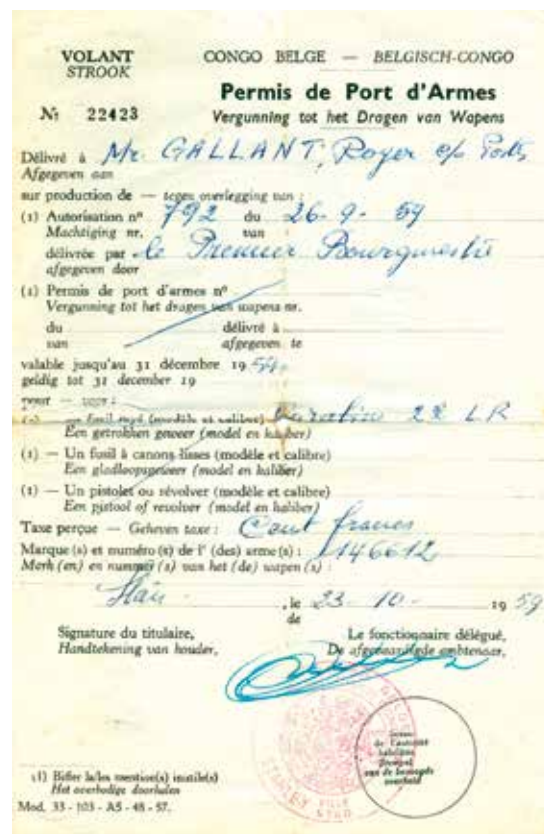 VOLANT
STROOK
CONGO BELGE — BELGISCH-CONGO
Permis de Port d'Armes
Vergunning tot het Dragen van Wapens
Nr 22423
Délivré à Mr. GALLANT, Roger c/o
Afgegeven aan
sur production de — tegen overlegging van :
(1) Autorisation nº 792 du 26-9-59
Machtiging nr. van
délivrée par le Premier Bourgmestre
afgegeven door
(1) Permis de port d'armes nº
Vergunning tot het dragen van wapens nr.
du délivré à
van afgegeven te
valable jusqu'au 31 décembre 1959.
geldig tot 31 december 19
pour — voor :
(1) — Un fusil rayé (modèle et calibre) Carabine 22 LR
Een getrokken geweer (model en kaliber)
(1) — Un fusil à canons lisses (modèle et calibre)
Een gladloopsgeweer (model en kaliber)
(1) — Un pistolet ou révolver (modèle et calibre)
Een pistool of revolver (model en kaliber)
Taxe perçue — Geheven taxe : Cent francs
Marque (s) et numéro (s) de l' (des) arme (s) : 146612
Merk (en) en nummer (s) van het (de) wapen (s) :
, le 23-10- 1959
de
Signature du titulaire,
Handtekening van houder,
Le fonctionnaire délégué,
De afgevaardigde ambtenaar,
Sceau
de l'autorité
habilitée
Stempel
van de bevoegde
overheid
STANLEYVILLE
STAD
(1) Biffer la/les mention(s) inutile(s)
Het overbodige doorhalen
Mod. 33 - 103 - A5 - 48 - 57.